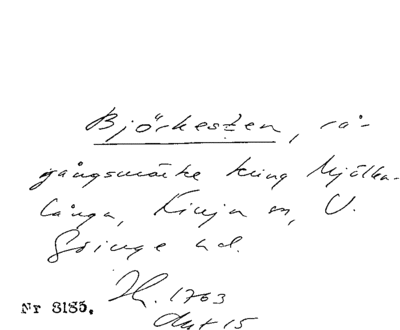 Björkesten, rå-
gångsmärke kring Mjölka-
långa, Kinja sn, V.
Göinge hd.
Nr 8185. Ak. 1763
Akt 15